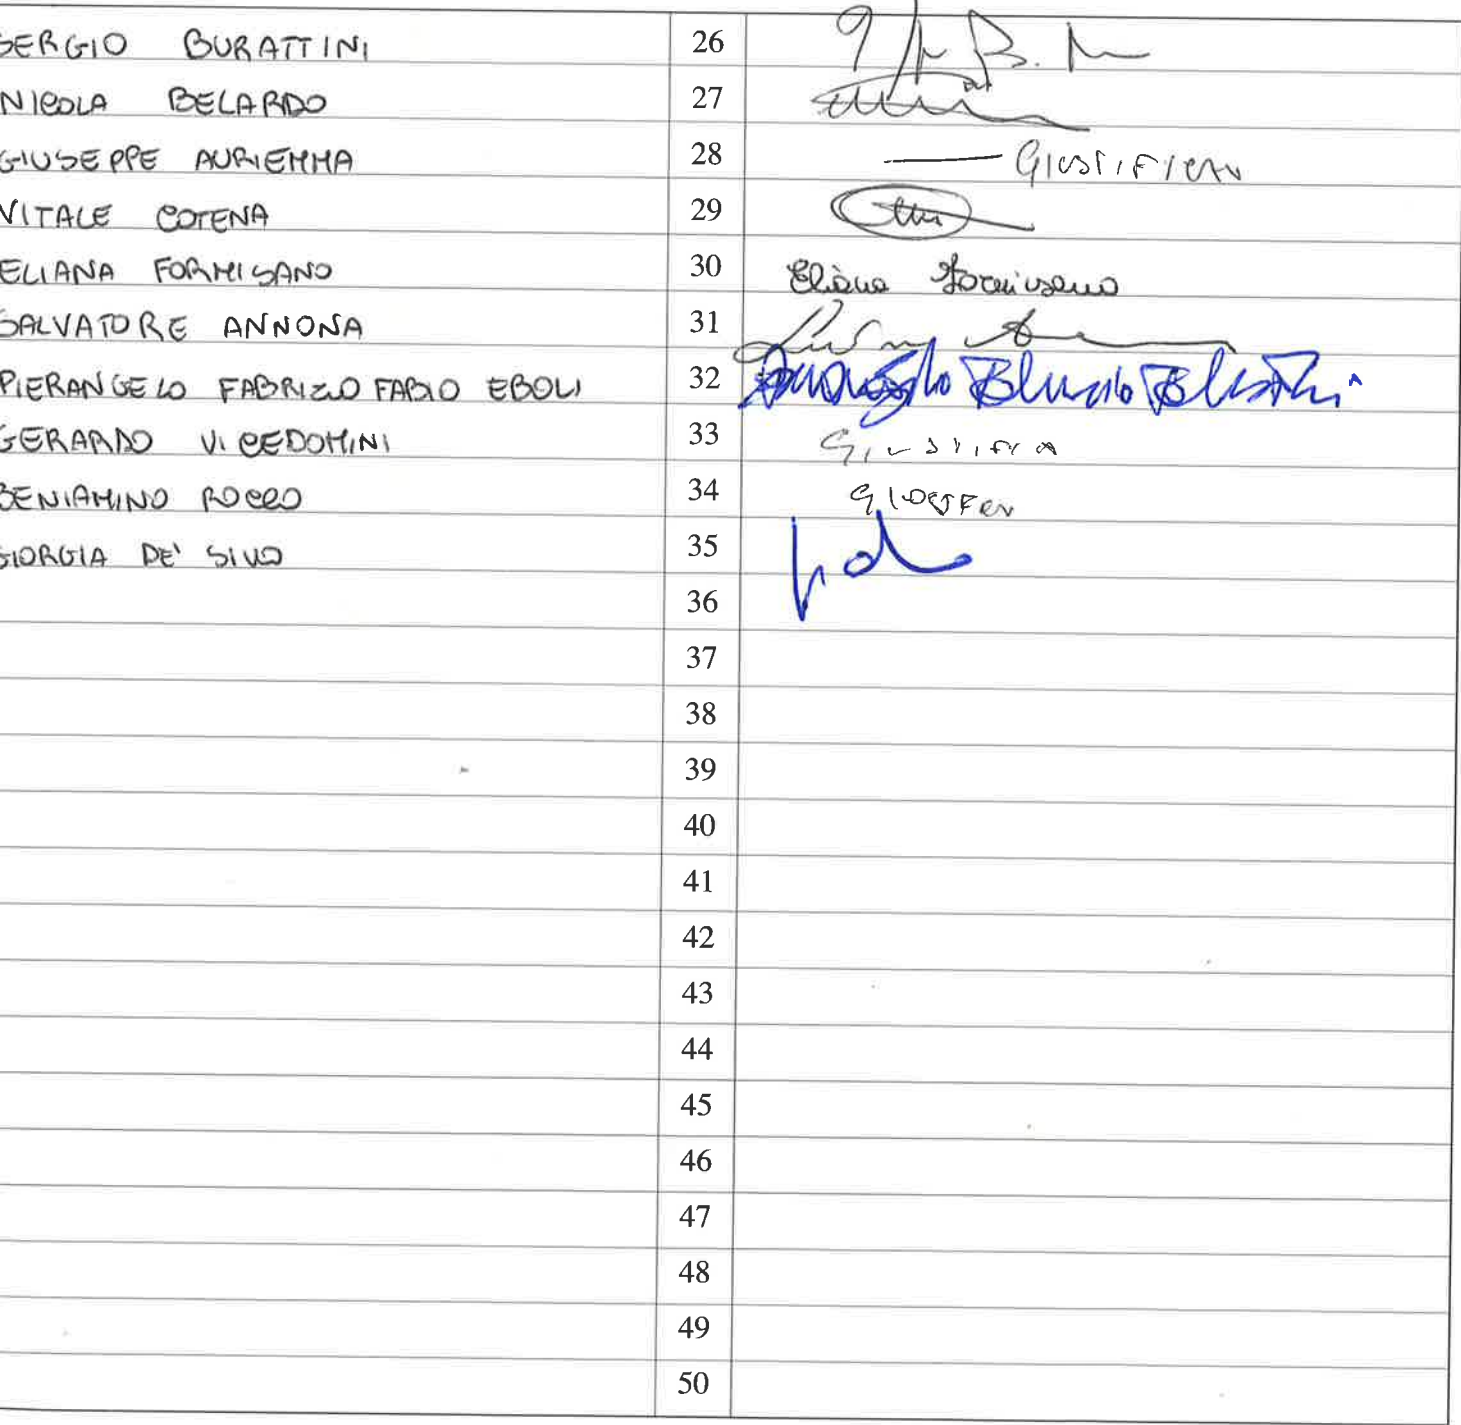 SERGIO BURATTINI 26
NICOLA BELARDO 27
GIUSEPPE AURIEMMA 28 GIUSTIFICATO
VITALE COTENA 29
ELIANA FORMISANO 30 Eliana Formisano
SALVATORE ANNONA 31
PIERANGELO FABRIZIO FABIO EBOLI 32
GERARDO VICEDOMINI 33
BENIAMINO ROCCO 34
GIORGIA DE' SIVO 35
36
37
38
39
40
41
42
43
44
45
46
47
48
49
50